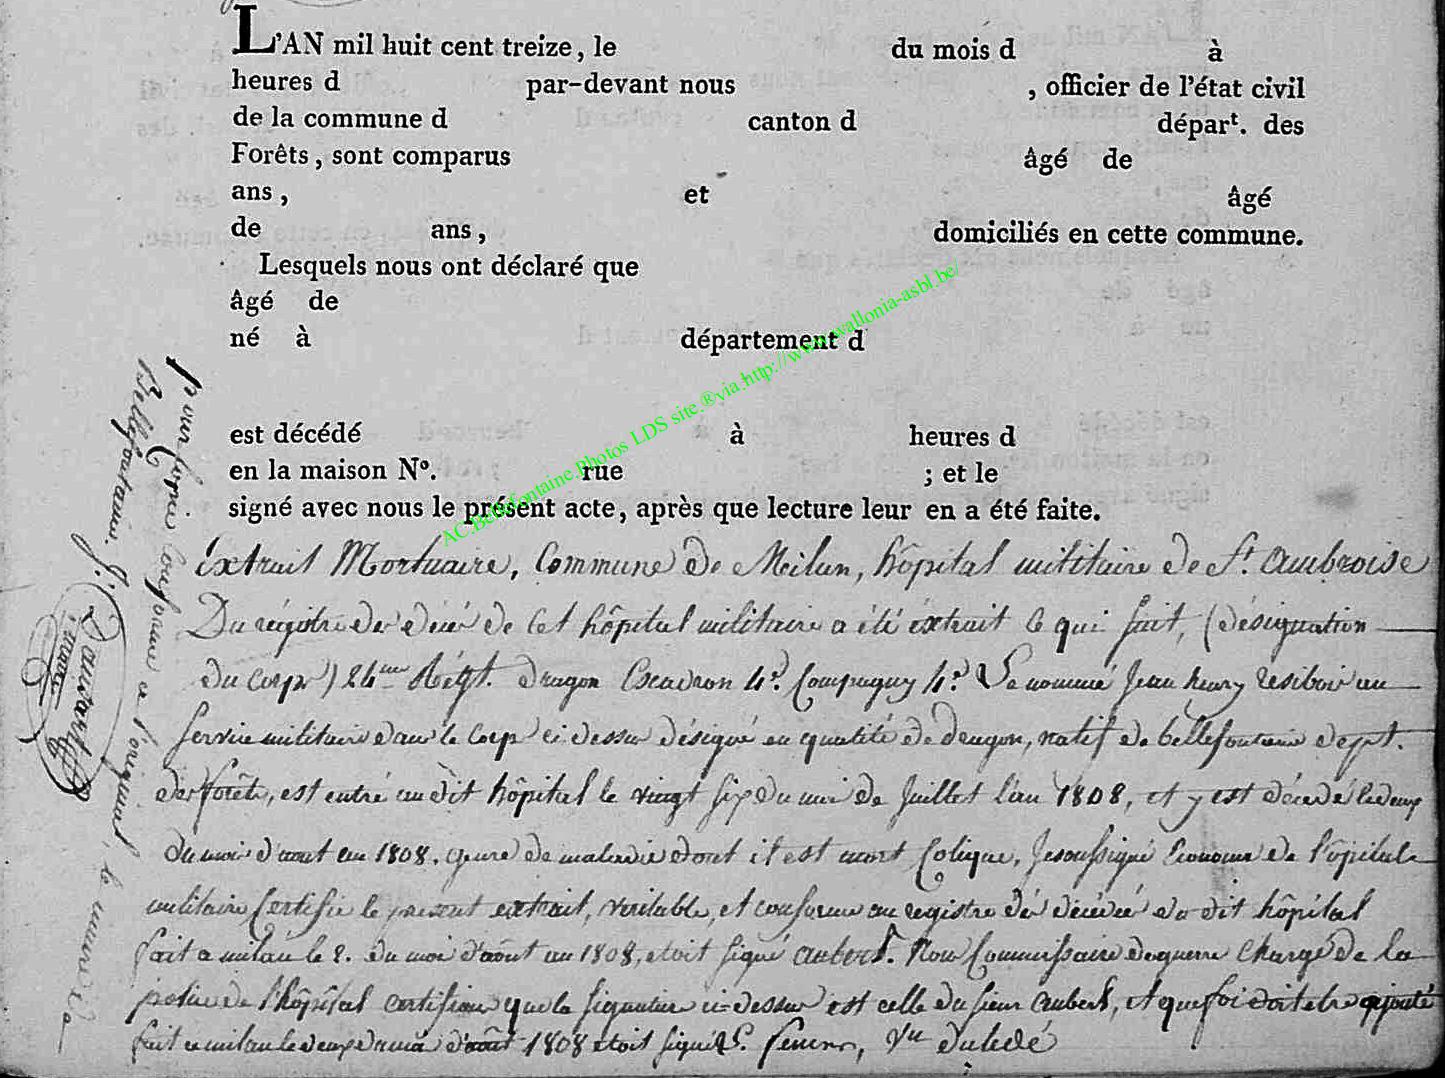 L'AN mil huit cent treize, le du mois d à
heures d par-devant nous , officier de l'état civil
de la commune d canton d départ. des
Forêts, sont comparus âgé de
ans, et âgé
de ans, domiciliés en cette commune.
Lesquels nous ont déclaré que
âgé de
né à département d
est décédé à heures d
en la maison N°. rue ; et le
signé avec nous le présent acte, après que lecture leur en a été faite.
Extrait Mortuaire, Commune de Milan, hôpital militaire de St. Ambroise
Du régistre des décès de cet hôpital militaire a été extrait ce qui suit, (désignation
du corps) 24me Régt. dragon Escadron 4e. Compagny 4e. Le nommé Jean henry resiboir au
service militaire dans le corps ci dessus désigné en qualité de dragon, natif de bellefontaine dept.
des forêts, est entré au dit hôpital le vingt six du moi de Juillet l'an 1808, et y est décédé le deux
du mois d'aout an 1808. genre de maladie dont il est mort Colique, Je soussigné Econome de l'ôpital
militaire Certifie le present extrait, veritable, et conforme au registre des décédés du dit hôpital
fait a milan le 2. du moi d'août an 1808, etoit signé aubert. Nous Commissaire de guerre Chargé de la
police de l'hôpital certifions que la signature ci-dessus est celle du sieur aubert, et que foi doit etre ajouté
fait a milan le deux du moi d'août 1808 etoit signé
pour Copie conforme a l'original, le maire de
Bellefontaine. J:
maire
AC.Bellefontaine.Photos LDS site.®via.http://www.wallonia-asbl.be/